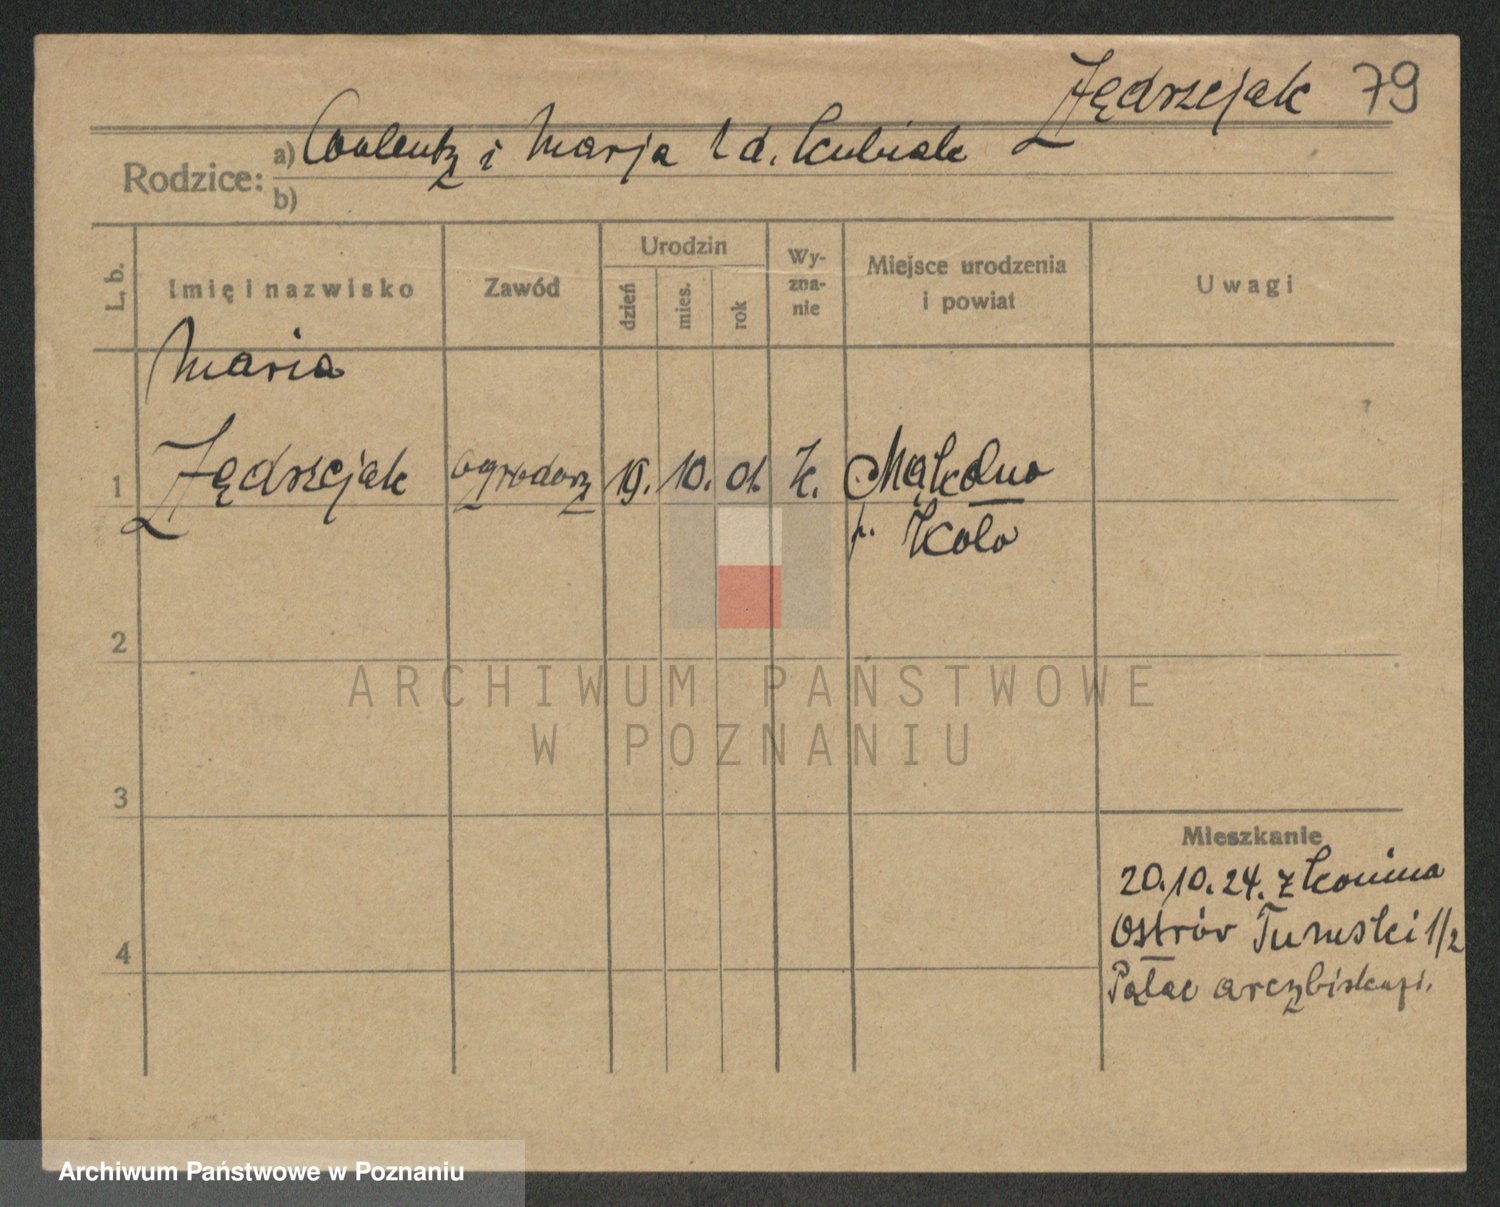 Jędrzejak 79
Rodzice: a) i Marja z d. Kubiak
b)
L. b. Imię i nazwisko Zawód Urodzin dzień mies. rok Wy-zna-nie Miejsce urodzenia i powiat Uwagi
Maria
1 Jędrzejak ogrodorz 19. 10. 01. k.
p. Koło
2
ARCHIWUM PAŃSTWOWE
W POZNANIU
3
Mieszkanie
20.10.24. z Konina
Ostrów Tumski 1/2
4
Pałac arcybiskupi.
Archiwum Państwowe w Poznaniu